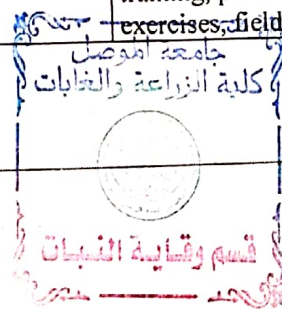 exercises, field
جامعة الموصل
كلية الزراعة والغابات
قسم وقاية النبات